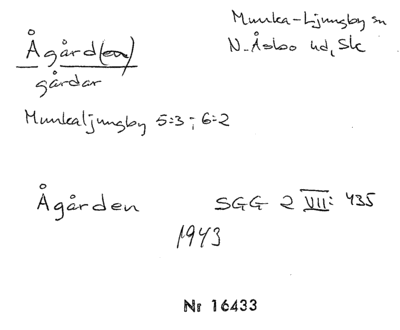 Ågård(en)
gårdar
Munka-Ljungby sn
N. Åsbo hd, Sk
Munkaljungby 5:3; 6:2
Ågården SGG 2 VII: 435
1943
Nr 16433